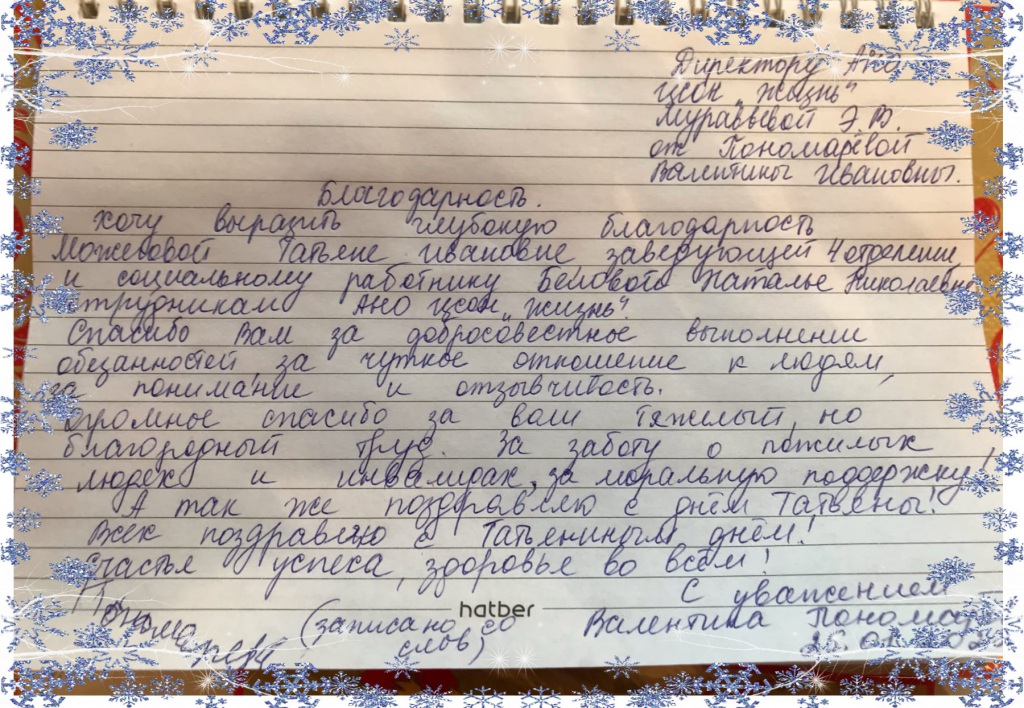 Директору АНО
ЦСОН „Жизнь"
Муравьевой Э.В.
от Пономарёвой
Валентины Ивановны.
Благодарность.
Хочу выразить глубокую благодарность
Татьяне Ивановне заведующей 4 отделения
и социальному работнику Беловой Наталье Николаевне
сотрудникам АНО ЦСОН „Жизнь"
Спасибо Вам за добросовестное выполнении
обезанностей, за чуткое отношение к людям,
за понимание и отзывчивость.
Огромное спасибо за ваш тяжилый, но
благородный труд. За заботу о пожилых
людях и инвалидах, за моральную поддержку!
А так же поздравляю с днём Татьяны!
Всех поздравляю с Татьяниным днём!
Счастья успеха, здоровье во всём!
С уважением
hatber
Пономарёва (записано со Валентина
слов)